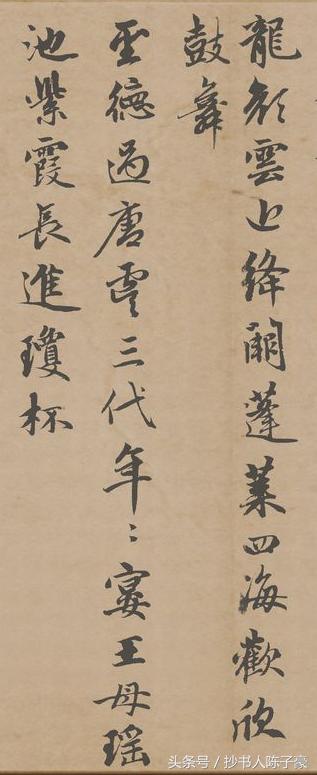 龍顏雲近絳闕蓬萊四海歡欣
鼓舞
聖德過唐虞三代年〻宴王母瑤
池紫霞長進瓊杯
头条号／抄书人陈子豪